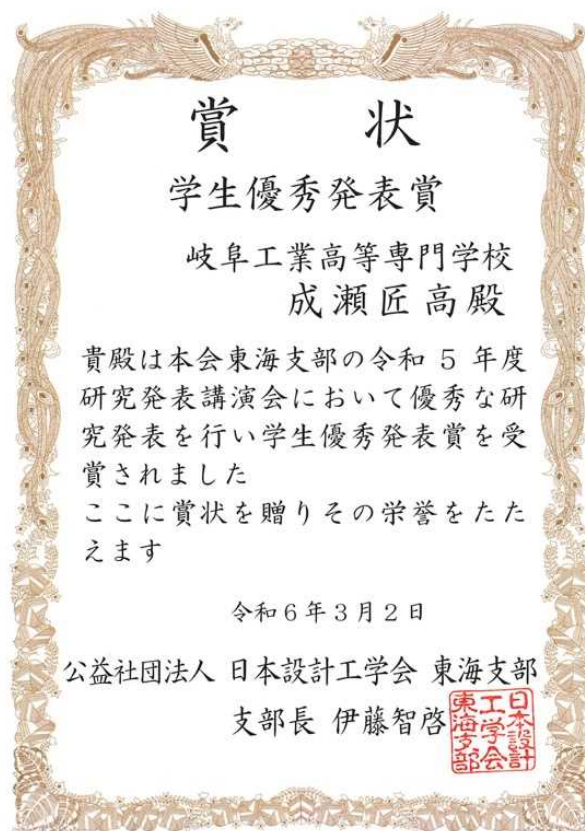 賞 状
学生優秀発表賞
岐阜工業高等専門学校
成瀬匠高殿
貴殿は本会東海支部の令和 5 年度
研究発表講演会において優秀な研
究発表を行い学生優秀発表賞を受
賞されました
ここに賞状を贈りその栄誉をたた
えます
令和6年3月2日
公益社団法人 日本設計工学会 東海支部
支部長 伊藤智啓
日本設計
工学会
東海支部